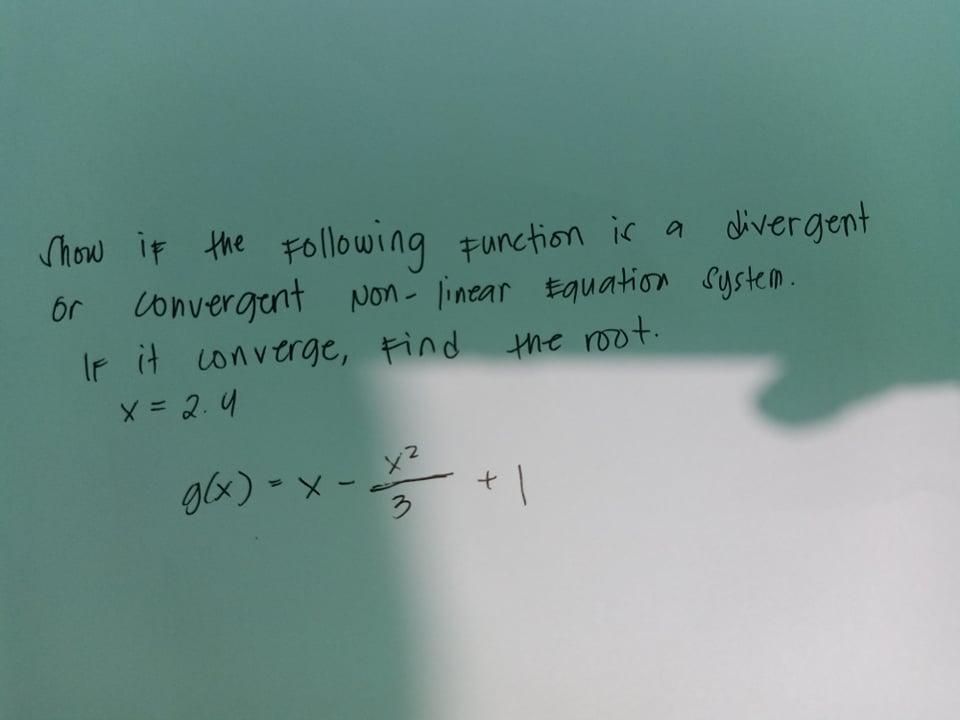 Show if the following function is a divergent
or convergent Non-linear Equation system.
If it converge, find the root.
x = 2.4
g(x) = x - x²/3 + 1